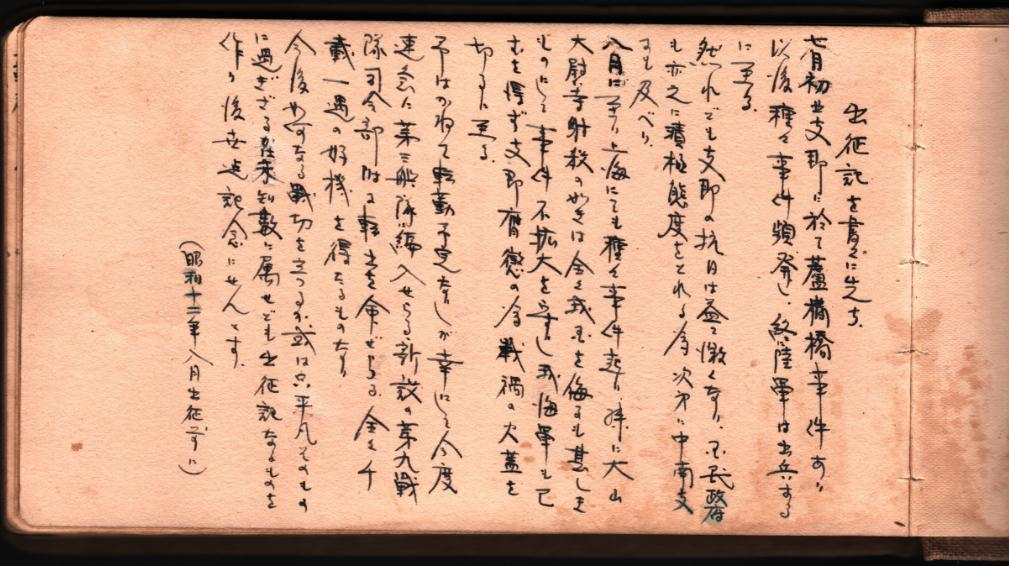 出征記を書くに先ち
七月初北支那に於て蘆溝橋事件あり
以後種々事件頻発し、終陸軍は出兵する
に至る。
然れども支那の抗日は益々激くなり、国民政府
も亦之に積極態度をとれる為次第に中南支
にも及べり。
八月に至り上海にても種々事件起り殊に大山
大尉等射殺の如きは全く我国を侮るも甚しき
ものにして事件不拡大を方針とし我海軍も已
むを得ず支那膺懲の為戦禍の火蓋を
切るに至る。
予はかねて転勤予定なりしが幸にして今度
連合に第三艦隊編入せらる新設の第九戦
隊司令部附に転出を命ぜらる。全く千
載一遇の好機を得たるものなり
今後如何なる戦功を立つるか或は只平凡そのもの
に過ぎざるか未知数に属せども出征記なるものを
作り後世迄記念にせんとす。
(昭和十二年八月出征前に)